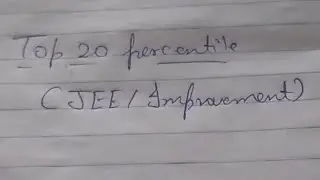 Top 20 percentile
(JEE / Improvement)